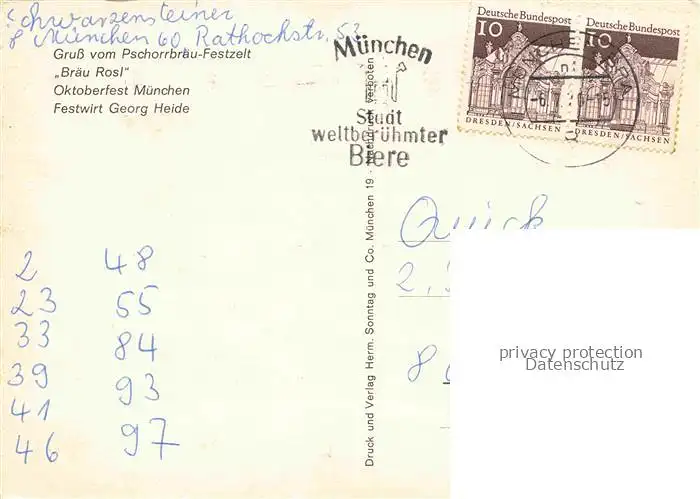 Schwarzensteiner
8 München 60 Rathochstr. 53
Gruß vom Pschorrbräu-Festzelt
„Bräu Rosl"
Oktoberfest München
Festwirt Georg Heide
München
Stadt
weltberühmter
Biere
Deutsche Bundespost
10
DRESDEN/SACHSEN
Deutsche Bundespost
10
DRESDEN/SACHSEN
Druck und Verlag Herm. Sonntag und Co. München 19 - Nachdruck verboten
Quick
2.
8
privacy protection
Datenschutz
2
23
33
39
41
46
48
55
84
93
97